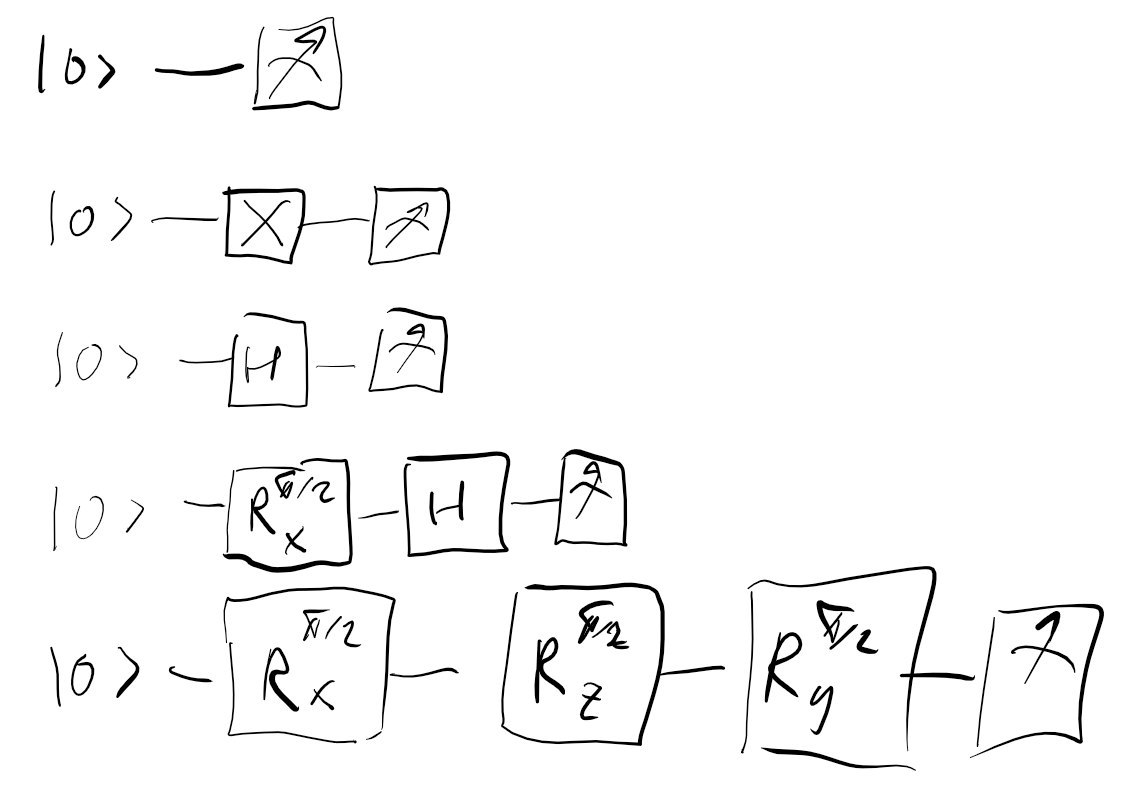 |0>
|0> X
|0> H
|0> R_x^π/2 H
|0> R_x^π/2 R_z^π/2 R_y^π/2